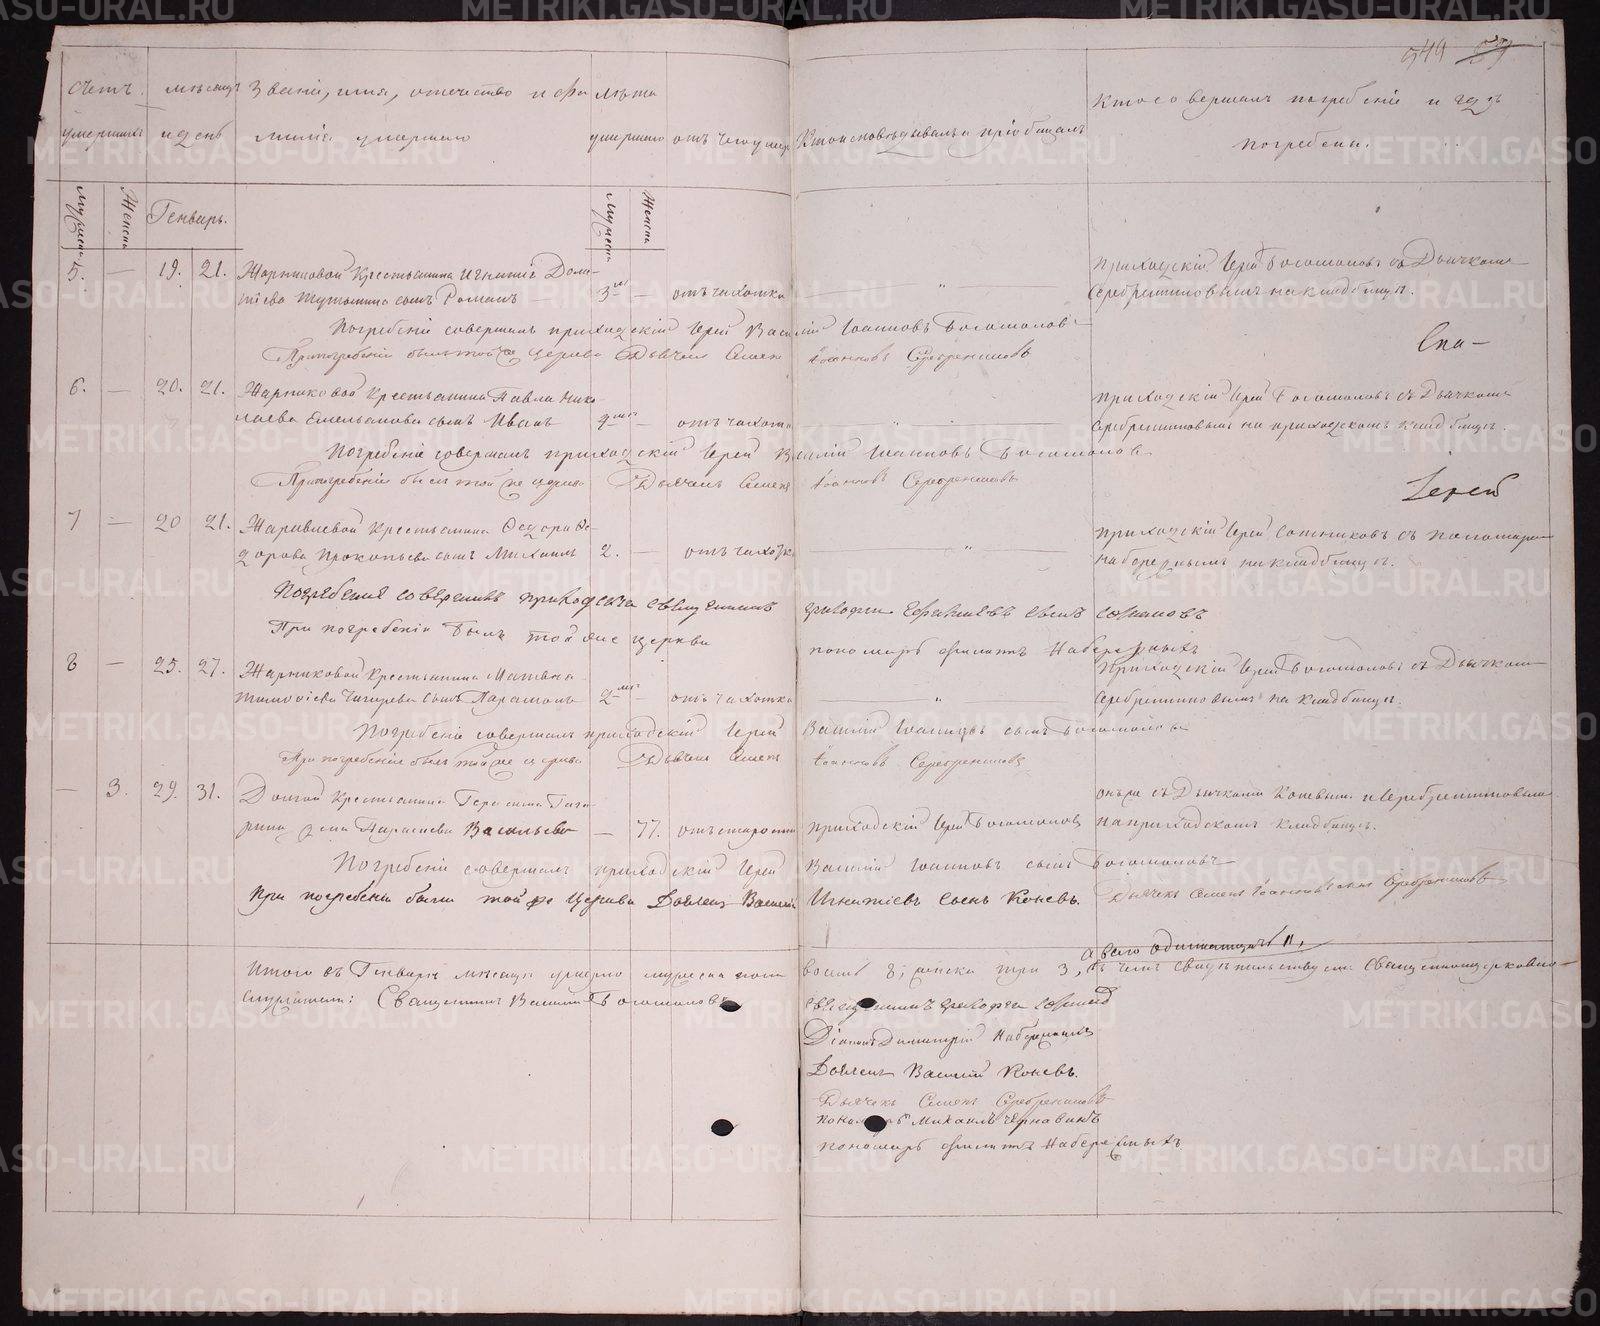 549
Счетъ умершихъ
мѣсяцъ и день
Званіе, имя, отечество и фамиліе умершаго
Мужеска
Женска
Генварь.
Лѣта умершаго
Мужеска
Женска
отъ чего умеръ
Кто исповѣдывалъ и пріобщалъ
Кто совершалъ погребеніе и гдѣ погребены.
5. — 19. 21. крестьянина Игнатія
сынъ Романъ 3 — отъ чахотки
приходскій Іерей Богомоловъ съ Дьячкомъ
Серебренниковымъ на кладбищѣ.
Погребеніе совершалъ приходскій Іерей Василій Іоанновъ Богомоловъ
При погребеніи былъ той же церкви Дьячекъ Семенъ Іоанновъ Серебренниковъ
Спа-
6. — 20. 21. Жарниковой крестьянина Павла Нико-
лаева Емельянова сынъ Иванъ — отъ чахотки
приходскій Іерей Богомоловъ съ Дьячкомъ
Серебренниковымъ на приходскомъ кладбищѣ.
Погребеніе совершалъ приходскій Іерей Василій Іоанновъ Богомоловъ
При погребеніи былъ той же церкви Дьячекъ Семенъ Іоанновъ Серебренниковъ
Іерей
7 — 20 21. крестьянина Ѳедора Ѳе-
дорова Прокопьева сынъ Михаилъ 2. — отъ чахотки
приходскій Іерей Сотниковъ съ пономаремъ
Набережнымъ на кладбищѣ.
Погребеніе совершилъ приходской священникъ сынъ
При погребеніи былъ той же церкви пономарь Филиппъ Набережныхъ
8 — 25. 27. Жарниковой крестьянина Матвѣя
Тимоѳіева сынъ Парамонъ 2 — отъ чахотки
приходскій Іерей Богомоловъ съ Дьячкомъ
Серебренниковымъ на кладбищѣ.
Погребеніе совершалъ приходскій Іерей Василій Іоанновъ сынъ Богомоловъ
При погребеніи былъ той же церкви Дьячекъ Семенъ Іоанновъ Серебренниковъ
— 3. 29. 31. крестьянина Герасима Гага-
рина жена Параскева Васильева — 77. отъ старости
приходскій Іерей Богомоловъ
онъ же съ Дьячками Коневымъ и Серебренниковымъ
на приходскомъ кладбищѣ.
Погребеніе совершалъ приходскій Іерей Василій Іоанновъ сынъ Богомоловъ
При погребеніи были той же Церкви Дьячекъ Василій Игнатіевъ сынъ Коневъ.
Дьячекъ Семенъ Іоанновъ сынъ Серебренниковъ
а всего одинатцать 11,
Итого въ Генварѣ мѣсяцѣ умерло мужеска пола восемь 8; женска три 3, въ чемъ свидѣтельствуемъ Священноцерковно-
служители: Священникъ Василій Богомоловъ
Діаконъ Димитрій Набережныхъ
Дьячекъ Василій Коневъ.
Дьячекъ Семенъ Серебренниковъ
пономарь Михаилъ Чернавинъ
пономарь Филиппъ Набережныхъ
METRIKI.GASO-URAL.RU